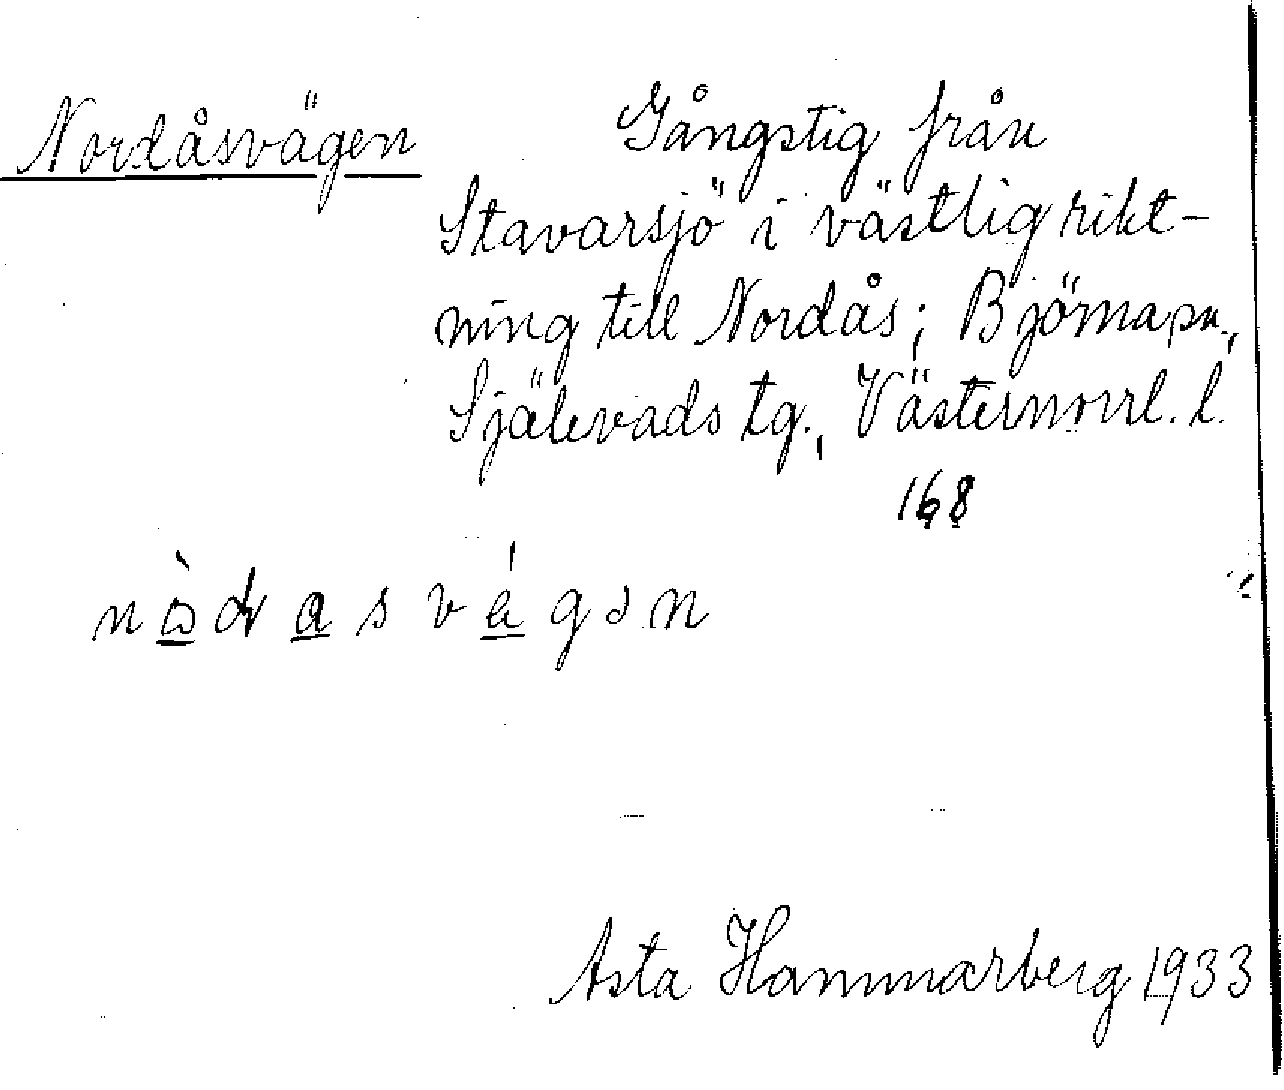 Nordåsvägen
Gångstig från
Stavarsjö i västlig rikt-
ning till Nordås; Björna sn.,
Själevads tg., Västernorrl. l.
168
Asta Hammarberg 1933